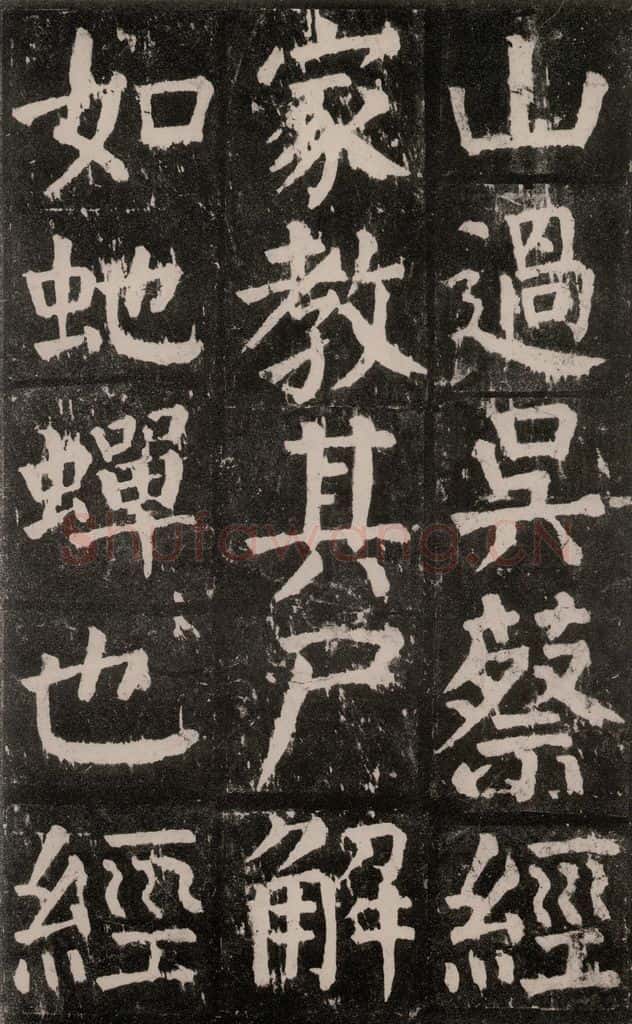 山過吳蔡經
家教其尸解
如虵蟬也經
Shufawang.CN